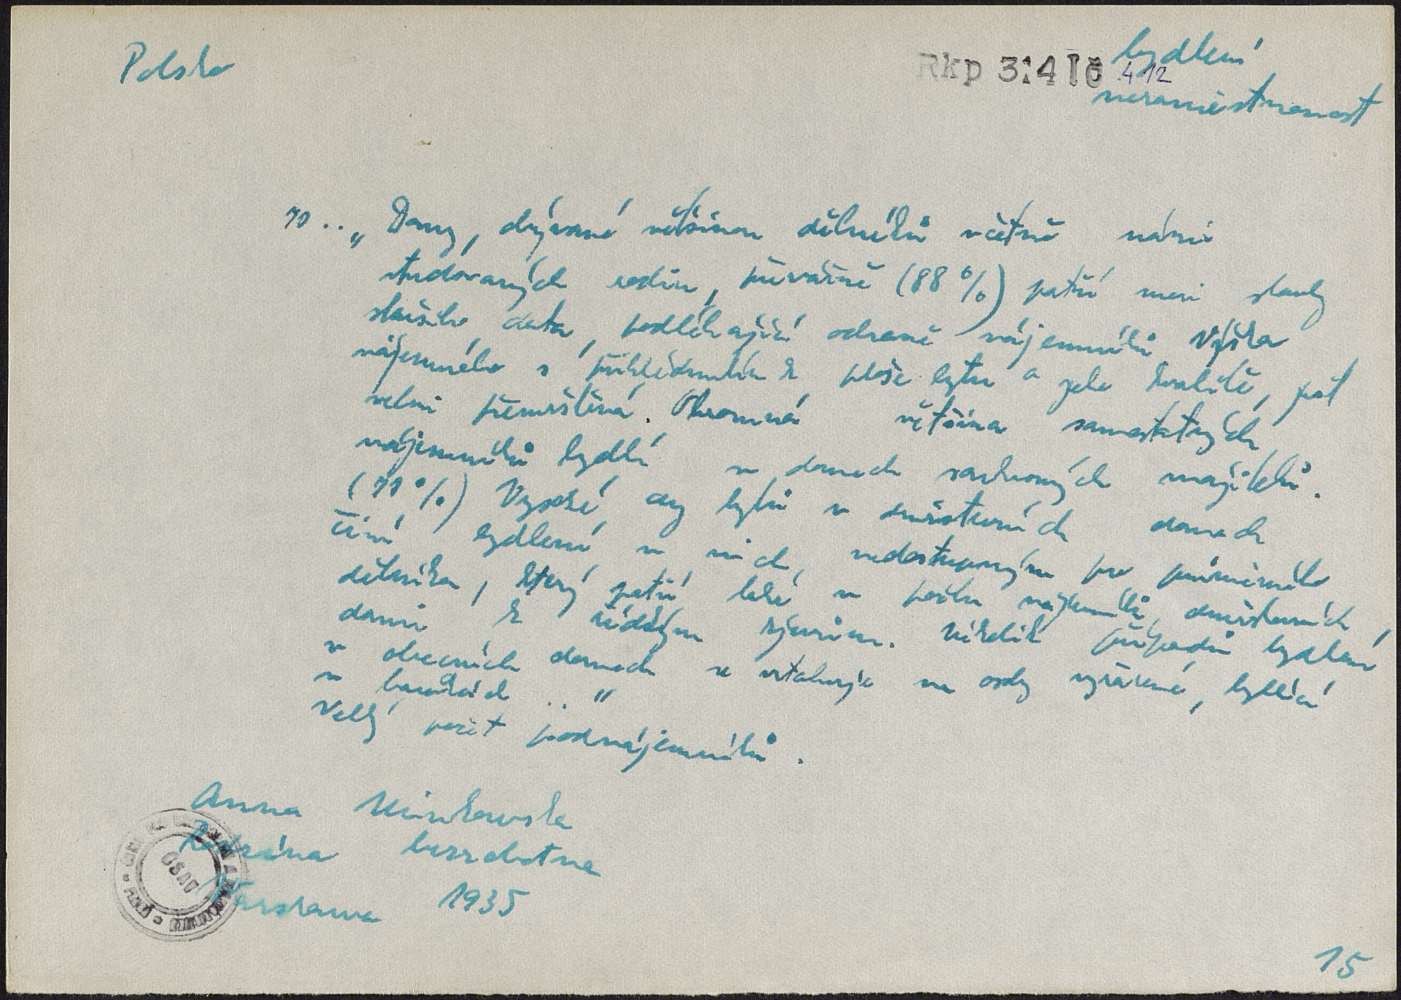 Polsko
Rkp 314 Ič 412
bydlení
nezaměstnanost
70 .. „ Domy, obývané většinou dělníků včetně námi
studovaných rodin, převážně (88 %) patří mezi stavby
staršího data, podléhající ochraně nájemníků. Výška
nájemného s přihlédnutím k ploše bytu a jeho kvalitě, je
velmi přemrštěná. Ohromná většina samostatných
nájemníků bydlí v domech soukromých majitelů.
(71 %) Vysoké ceny bytů v družstevních domech
činí bydlení v nich nedostupným pro průměrného
dělníka, který patří také v počtu nájemníků družstevních
domů k řídkým zjevům. Několik případů bydlení
v obecních domech se vztahuje na osoby vyřazené, bydlící
v barácích "
Velký počet podnájemníků.
Anna Minkowska
Rodzina bezrobotna
Warszawa 1935
15